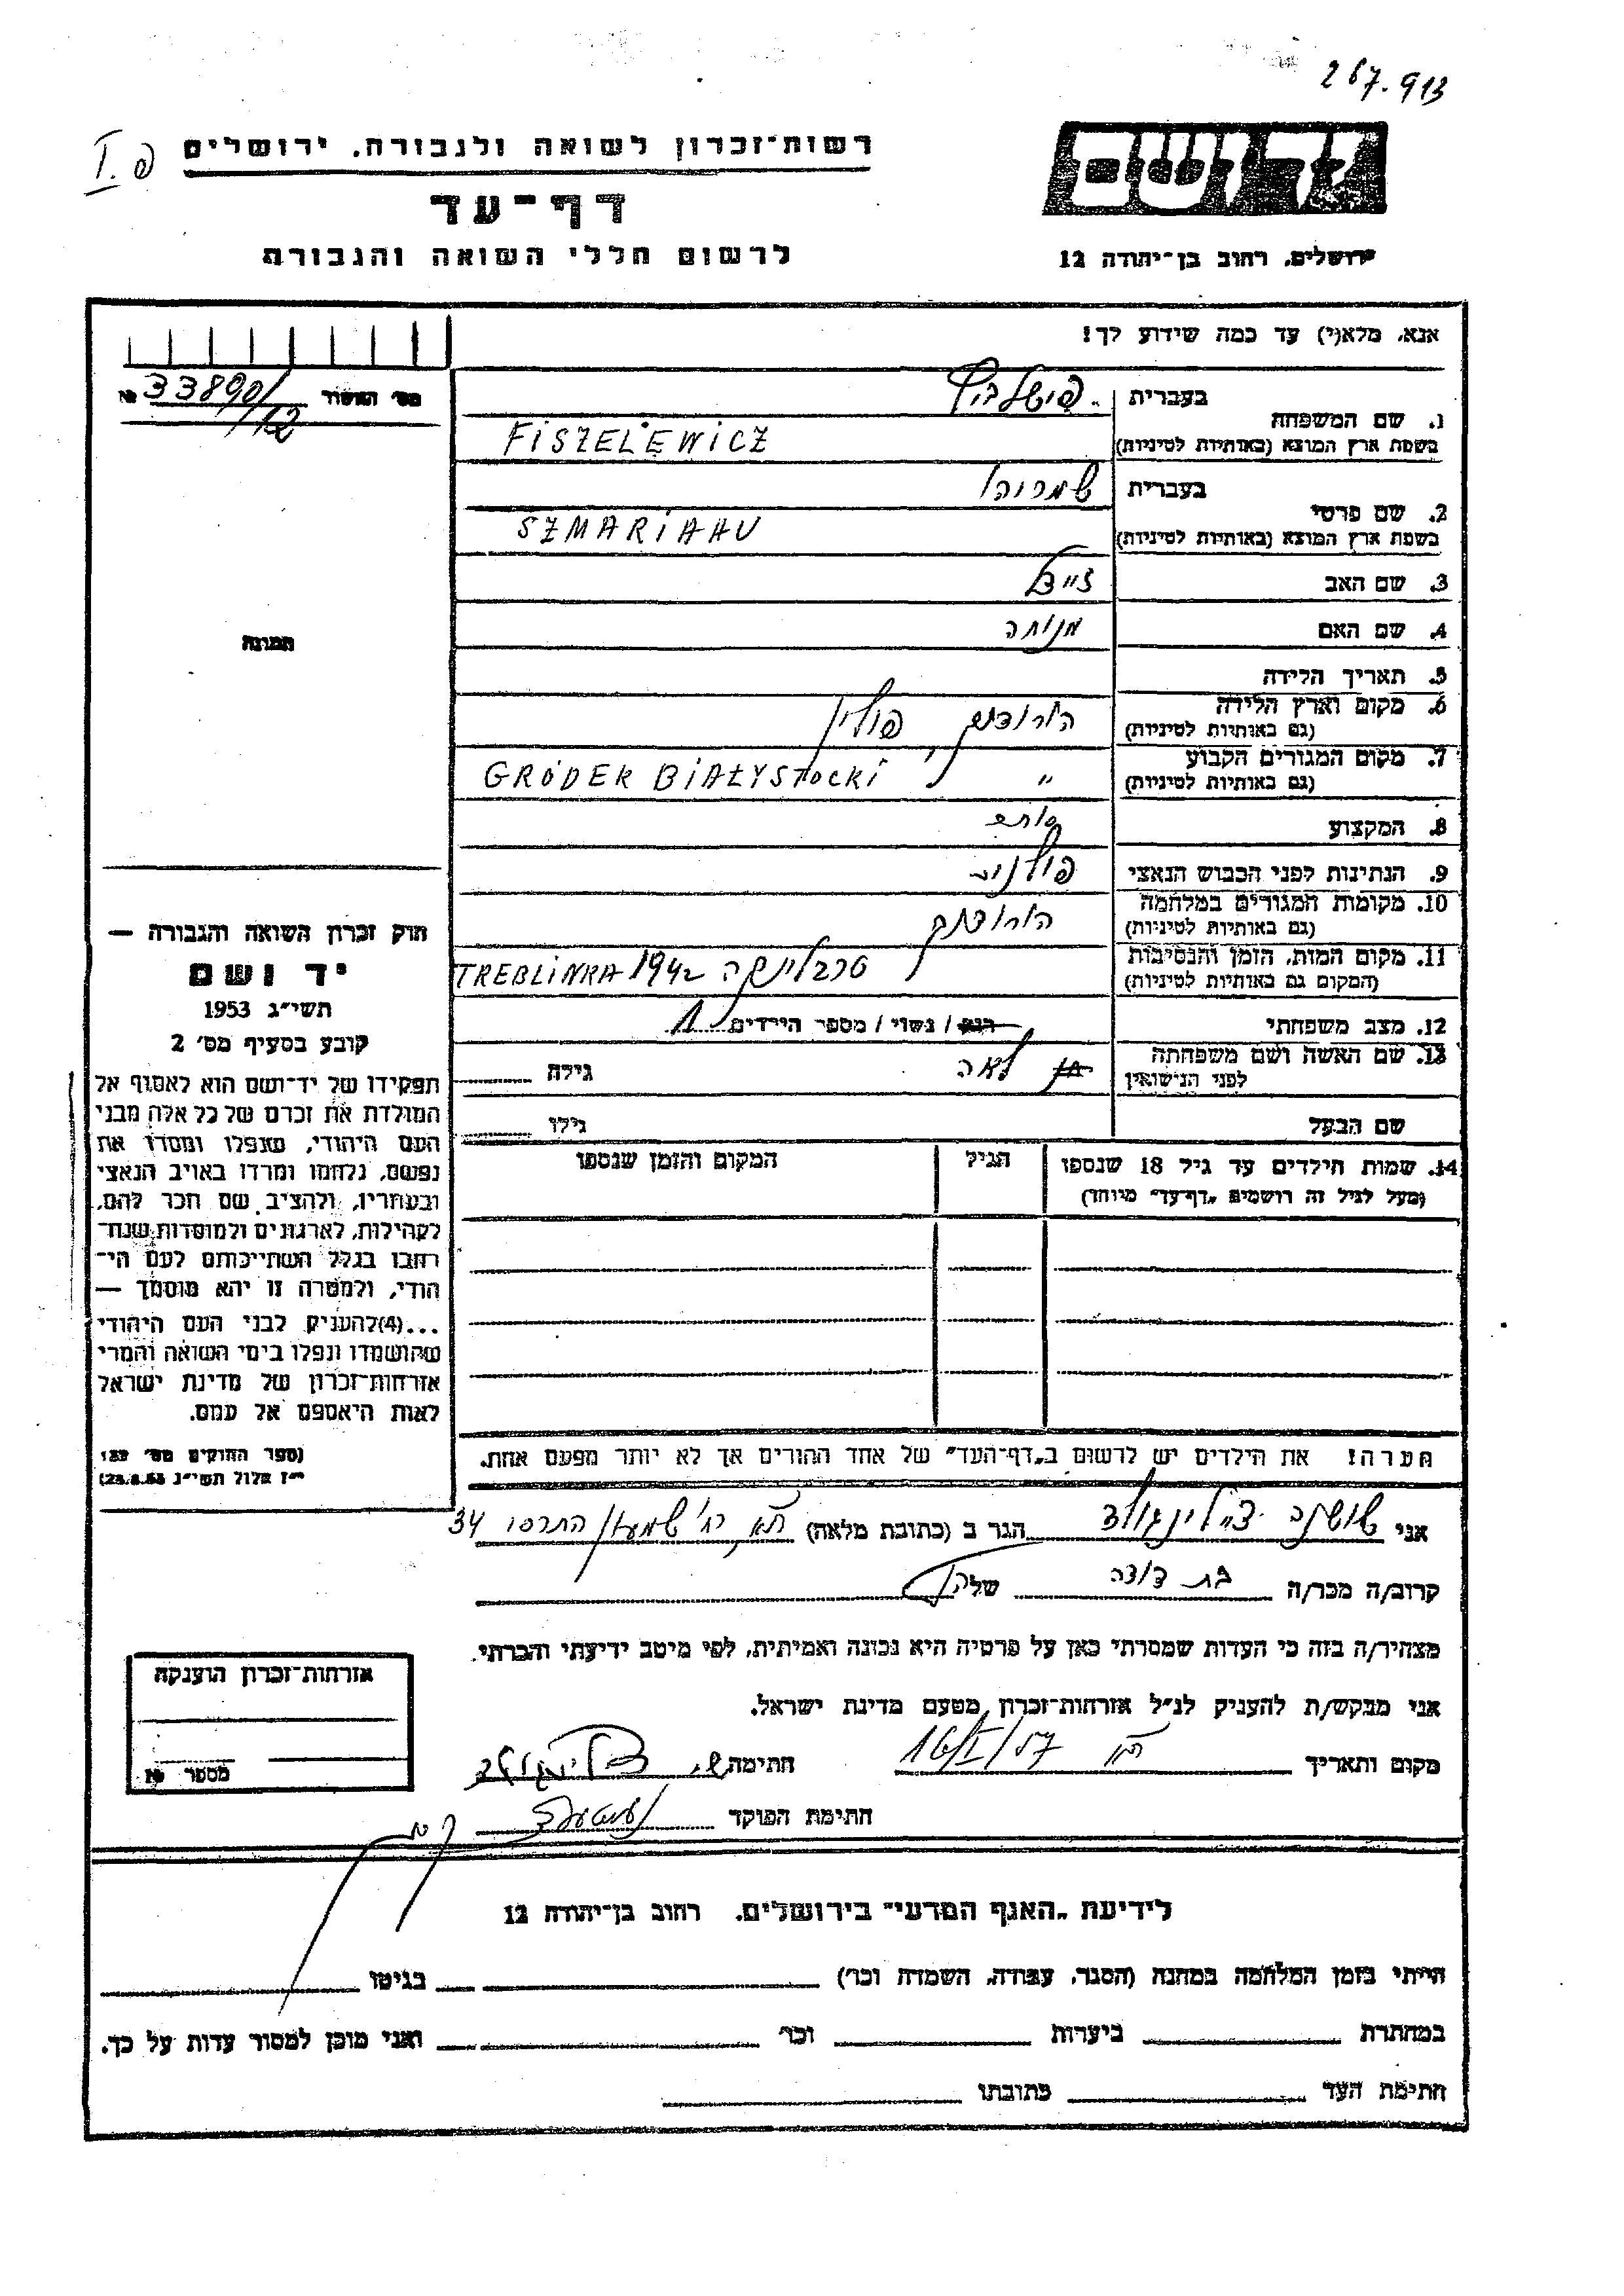 267.913
רשות־זכרון לשואה ולגבורה. ירושלים
I. פ
דף־עד
לרשום חללי השואה והגבורה
ירושלים, רחוב בן־יהודה 12
אנא, מלא(י) עד כמה שידוע לך!
מס׳ האשור № 33890/12
1. שם המשפחה
בעברית פישלביץ
בשפת ארץ המוצא (באותיות לטיניות) FISZELEWICZ
2. שם פרטי
בעברית שמריהו
בשפת ארץ המוצא (באותיות לטיניות) SZMARIAHU
3. שם האב זיידל
4. שם האם מנוחה
5. תאריך הלידה
6. מקום וארץ הלידה
(גם באותיות לטיניות) הורודוק, פולין
7. מקום המגורים הקבוע
(גם באותיות לטיניות) " GRÓDEK BIAŁYSTOCKI
8. המקצוע סוחר
9. הנתינות לפני הכבוש הנאצי פולנית
10. מקומות המגורים במלחמה
(גם באותיות לטיניות) הורודוק
11. מקום המות, הזמן והנסיבות
(המקום גם באותיות לטיניות) טרבלינקה 1942 TREBLINKA
12. מצב משפחתי רוק / נשוי / מספר הילדים 1
13. שם האשה ושם משפחתה
לפני הנישואין לאה גילה
שם הבעל גילו
14. שמות הילדים עד גיל 18 שנספו
(מעל לגיל זה רושמים „דף־עד״ מיוחד)
הגיל
המקום והזמן שנספו
הערה! את הילדים יש לרשום ב„דף־העד״ של אחד ההורים אך לא יותר מפעם אחת.
התמונה
חוק זכרון השואה והגבורה —
יד ושם
תשי״ג 1953
קובע בסעיף מס׳ 2
תפקידו של יד־ושם הוא לאסוף אל
המולדת את זכרם של כל אלה מבני
העם היהודי, שנפלו ומסרו את
נפשם, נלחמו ומרדו באויב הנאצי
ובעוזריו, ולהציב שם וזכר להם,
לקהילות, לארגונים ולמוסדות שנח־
רבו בגלל השתייכותם לעם הי־
הודי, ולמטרה זו יהא מוסמך —
...(4)להעניק לבני העם היהודי
שהושמדו ונפלו בימי השואה והמרי
אזרחות־זכרון של מדינת ישראל
לאות היאספם אל עמם.
(ספר החוקים מס׳ 132
י״ז אלול תשי״ג 28.8.53)
אני שושנה זיילינגולד הגר ב (כתובת מלאה) ת״א, רח׳ שמעון התרסי 34
קרוב/ה מכר/ה בת דודה של
מצהיר/ה בזה כי העדות שמסרתי כאן על פרטיה היא נכונה ואמיתית, לפי מיטב ידיעתי והכרתי.
אני מבקש/ת להעניק לנ״ל אזרחות־זכרון מטעם מדינת ישראל.
מקום ותאריך ת״א 16/I/57 חתימה
חתימת הפוקד
אזרחות־זכרון הוענקה
מספר №
לידיעת „האגף המדעי״ בירושלים. רחוב בן־יהודה 12
הייתי בזמן המלחמה במחנה (הסגר, עבודה, השמדה וכו׳) בגיטו
במחתרת ביערות וכו׳ ואני מוכן למסור עדות על כך.
חתימת העד כתובתו